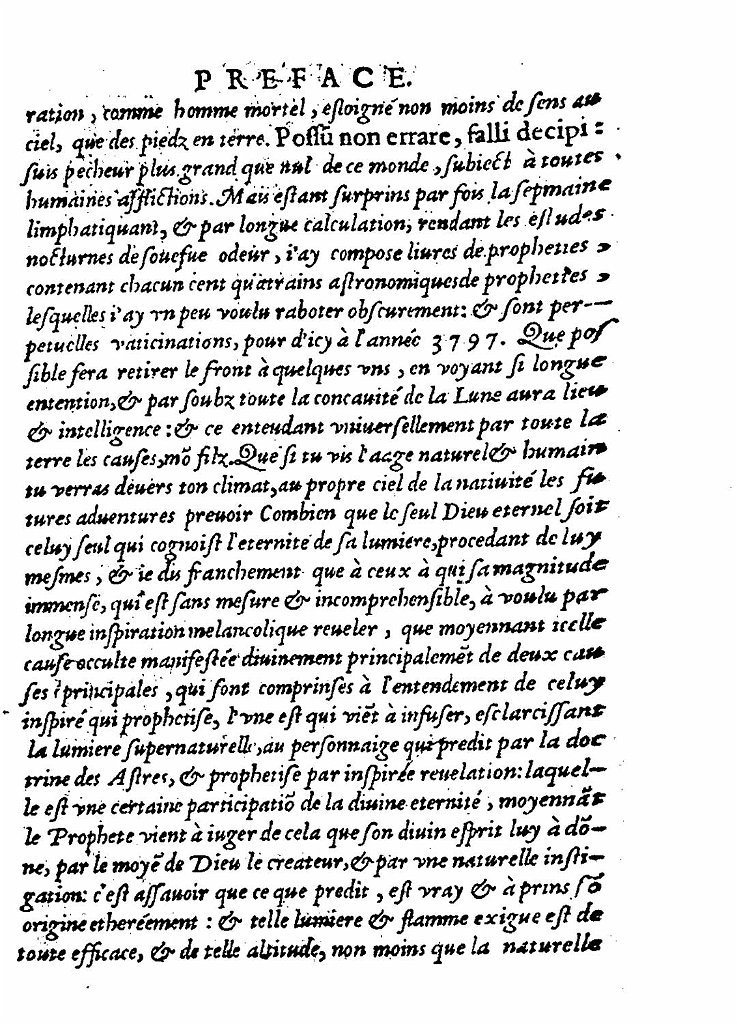 PREFACE.
ration, comme homme mortel, esloigné non moins de sens au
ciel, que des piedz en terre. Possũ non errare, falli decipi:
suis pecheur plus grand que nul de ce monde, subiect à toutes
humaines afflictions. Mais estant surprins par fois la sepmaine
limphatiquant, & par longue calculation, rendant les estudes
nocturnes de souefue odeur, i'ay compose liures de propheties,
contenant chacun cent quatrains astronomiques de propheties,
lesquelles i'ay vn peu voulu raboter obscurement: & sont per-
petuelles vaticinations, pour d'icy à l'année 3797. Que pos
sible fera retirer le front à quelques vns, en voyant si longue
entention, & par soubz toute la concauité de la Lune aura lieu
& intelligence: & ce entendant vniuersellement par toute la
terre les causes, mõ filz. Que si tu vis l'aage naturel & humain
tu verras deuers ton climat, au propre ciel de la natiuité les fu
tures aduentures preuoir Combien que le seul Dieu eternel soit
celuy seul qui cognoist l'eternité de sa lumiere, procedant de luy
mesmes, & ie dis franchement que à ceux à qui sa magnitude
immense, qui est sans mesure & incomprehensible, à voulu par
longue inspiration melancolique reueler, que moyennant icelle
cause occulte manifestée diuinement principalemẽt de deux cau
ses principales, qui sont comprinses à l'entendement de celuy
inspiré qui prophetise, l'vne est qui viẽt à infuser, esclarcissant
la lumiere supernaturelle, au personnaige qui predit par la doc
trine des Astres, & prophetise par inspirée reuelation: laquel-
le est vne certaine participatiõ de la diuine eternité, moyennãt
le Prophete vient à iuger de cela que son diuin esprit luy à dõ-
né, par le moyẽ de Dieu le createur, & par vne naturelle insti-
gation: c'est assauoir que ce que predit, est vray & à prins sõ
origine etheréement: & telle lumiere & flamme exigue est de
toute efficace, & de telle altitude, non moins que la naturelle